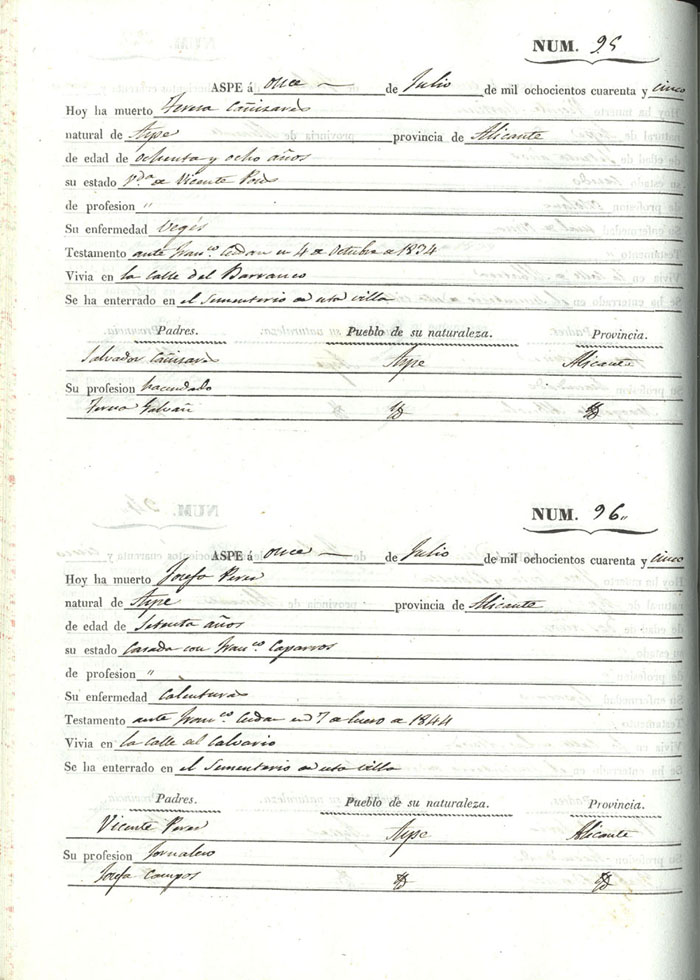 NUM. 95
ASPE á once de Julio de mil ochocientos cuarenta y cinco
Hoy ha muerto Teresa Cañizares
natural de Aspe provincia de Alicante
de edad de ochenta y ocho años
su estado V.da de Vicente
de profesion "
Su enfermedad Vegés
Testamento ante Fran.co en 4 de Octubre de 1834
Vivia en la Calle del Barranco
Se ha enterrado en el Sementerio de esta villa
Padres. Pueblo de su naturaleza. Provincia.
Salvador Cañizares Aspe Alicante
Su profesion hacendado
Teresa Galvañ
NUM. 96
ASPE á once de Julio de mil ochocientos cuarenta y cinco
Hoy ha muerto Josefa Perez
natural de Aspe provincia de Alicante
de edad de Setenta años
su estado Casada con Fran.co Caparros
de profesion "
Su enfermedad Calenturas
Testamento ante Fran.co en 7 de Enero de 1844
Vivia en la Calle del Calvario
Se ha enterrado en el Sementerio de esta villa
Padres. Pueblo de su naturaleza. Provincia.
Vicente Perez Aspe Alicante
Su profesion Jornalero
Josefa Campos